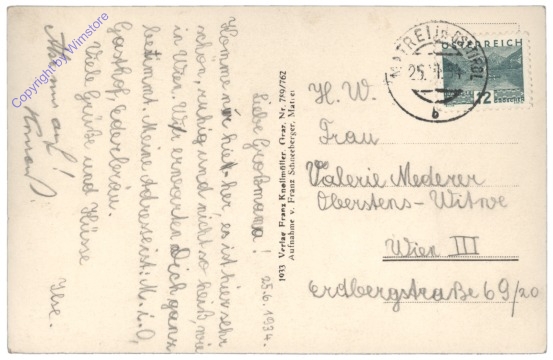 25.6.1934.
Liebe Großmama!
Komme nur hierher, es ist hier sehr
schön, ruhig und nicht so heiß, wie
in Wien. Wir erwarten Dich ganz
bestimmt. Meine Adresse ist: M. i. O.,
Gasthof
Viele Grüße und Küsse
Ilse.
Komm auf!
1933 Verlag Franz Knollmüller, Graz, Nr. 719/762
Aufnahme v. Franz Schneeberger, Matrei
MATREI IN OSTTIROL
25.
b
ÖSTERREICH
12 GROSCHEN
H. W.
Frau
Valerie Mederer
Oberstens-Witwe
Wien III
Erdbergstraße 69/20
Copyright by Wimstore